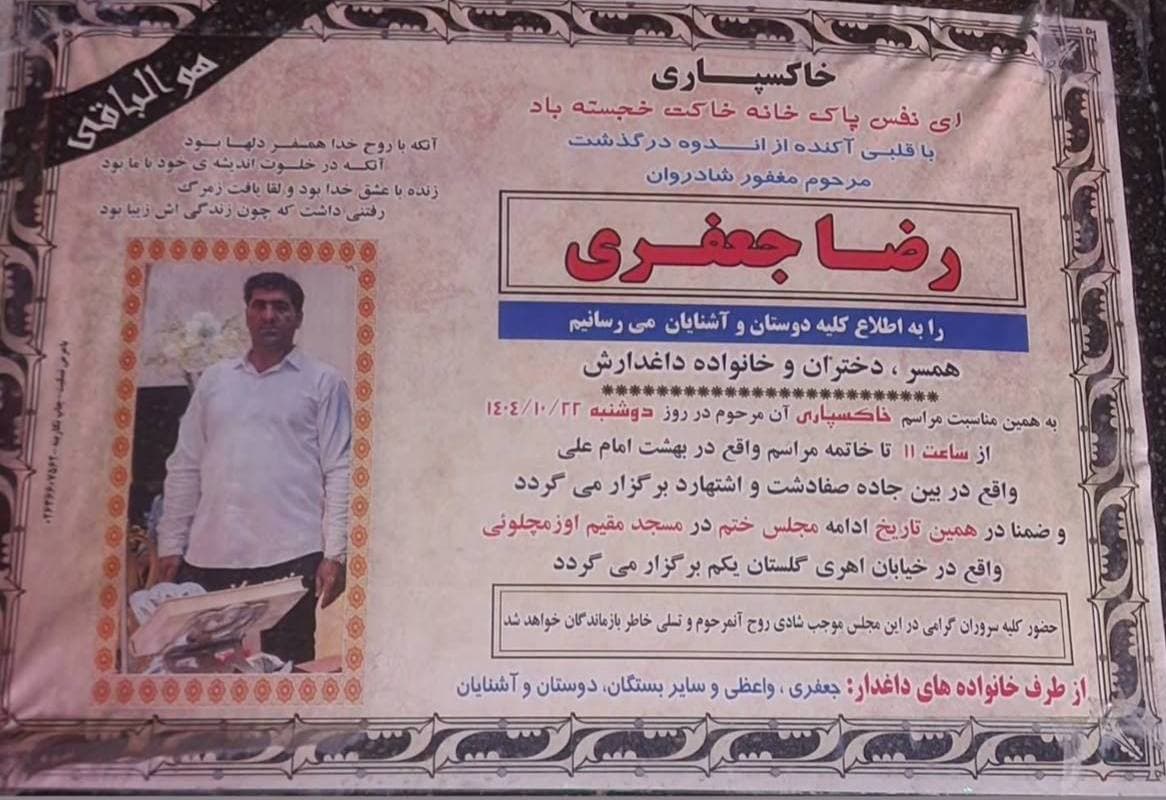 هو الباقی
خاکسپاری
ای نفس پاک خانه خاکت خجسته باد
با قلبی آکنده از اندوه درگذشت
مرحوم مغفور شادروان
رضا جعفری
را به اطلاع کلیه دوستان و آشنایان می رسانیم
همسر ، دختران و خانواده داغدارش
به همین مناسبت مراسم خاکسپاری آن مرحوم در روز دوشنبه ۱۴۰۴/۱۰/۲۲
از ساعت ۱۱ تا خاتمه مراسم واقع در بهشت امام علی
واقع در بین جاده صفادشت و اشتهارد برگزار می گردد
و ضمنا در همین تاریخ ادامه مجلس ختم در مسجد مقیم اوزمچلوئی
واقع در خیابان اهری گلستان یکم برگزار می گردد
حضور کلیه سروران گرامی در این مجلس موجب شادی روح آنمرحوم و تسلی خاطر بازماندگان خواهد شد
از طرف خانواده های داغدار: جعفری ، واعظی و سایر بستگان، دوستان و آشنایان
آنکه با روح خدا همسفر دلها بود
آنکه در خلوت اندیشه ی خود با ما بود
زنده با عشق خدا بود و لقا یافت زمرگ
رفتنی داشت که چون زندگی اش زیبا بود